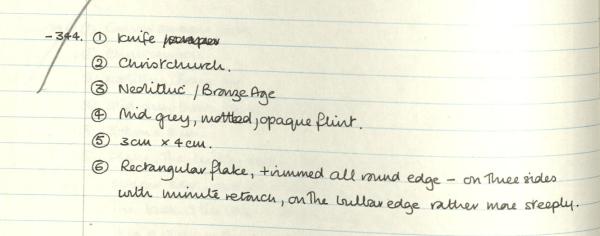 -344. ① Knife /
② Christchurch.
③ Neolithic / Bronze Age
④ Mid grey, mottled, opaque flint.
⑤ 3cm x 4cm.
⑥ Rectangular flake, trimmed all round edge - on three sides
with minute retouch, on the bulbar edge rather more steeply.